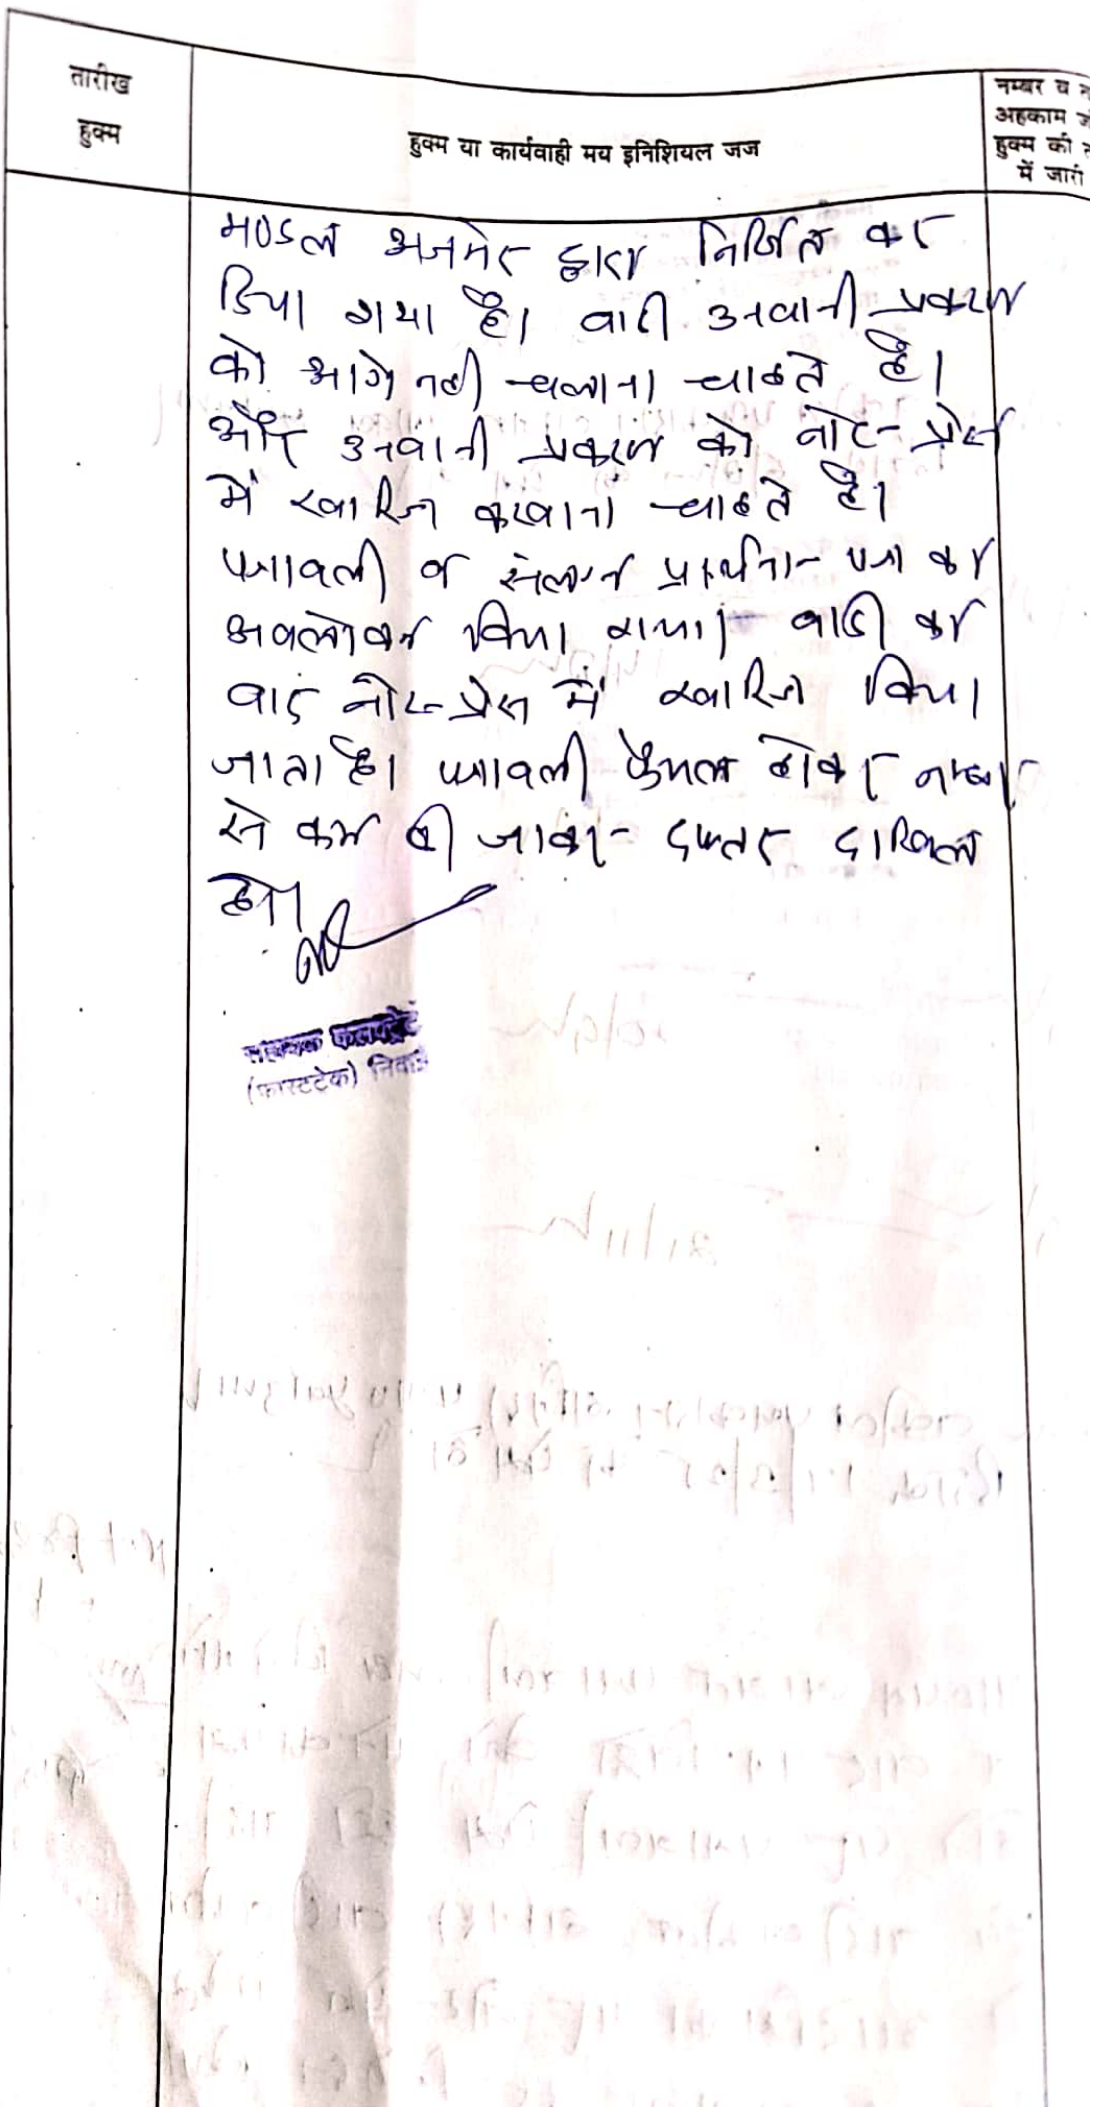 तारीख
हुक्म
हुक्म या कार्यवाही मय इनिशियल जज
नम्बर व
अहकाम
हुक्म की
में जारी
मण्डल अजमेर द्वारा निर्णित कर
दिया गया है। वादी उनवानी प्रकरण
को आगे नही चलाना चाहते है।
और उनवानी प्रकरण को नोट-प्रेस
में खारिज करवाना चाहते है।
पत्रावली व संलग्न प्रार्थना-पत्र का
अवलोकन किया गया। वादी का
वाद नोट-प्रेस में खारिज किया
जाता है। पत्रावली फैसल होकर नम्बर
से कम की जाकर दफ्तर दाखिल
हो।
सहायक कलक्ट्रेट
(फास्टटेक) निवाई